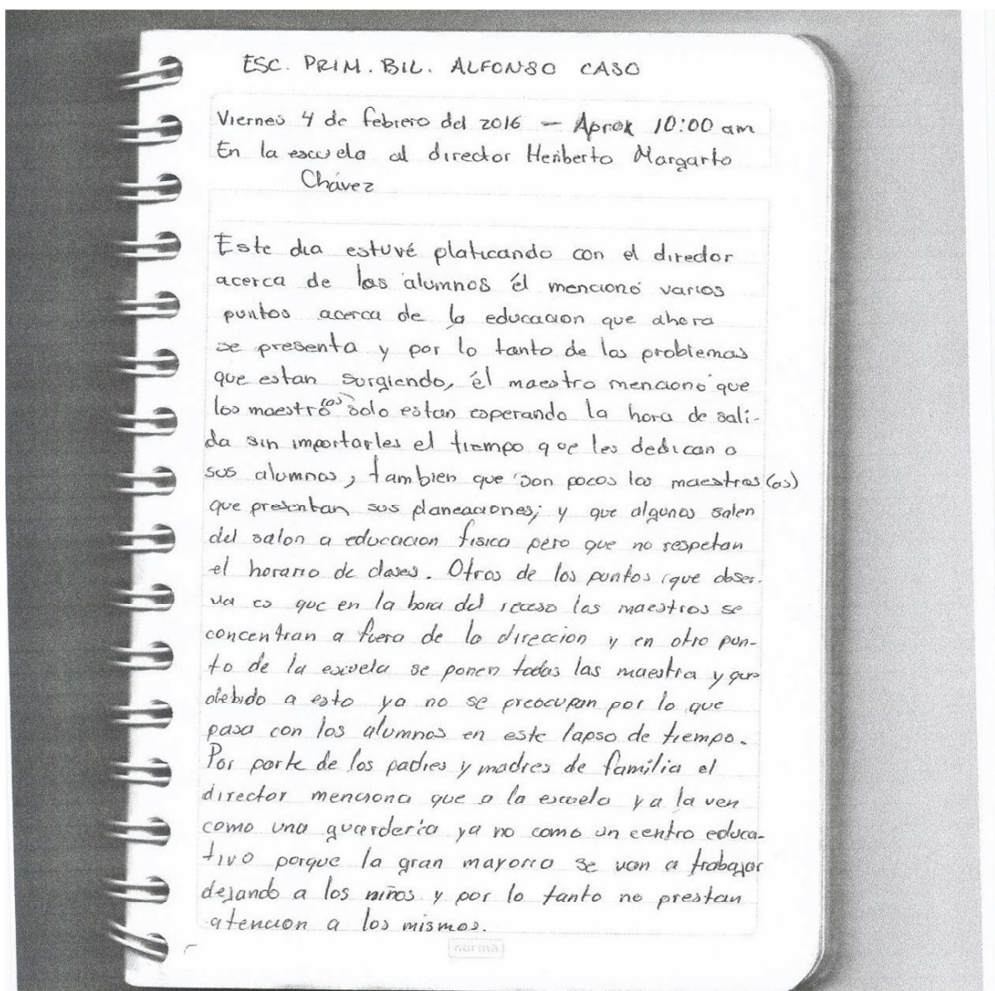 ESC. PRIM. BIL. ALFONSO CASO
Viernes 4 de febrero del 2016 — Aprox 10:00 am
En la escuela al director Heriberto Margarto
Chávez
Este dia estuvé platicando con el director
acerca de los alumnos él mencionó varios
puntos acerca de la educacion que ahora
se presenta y por lo tanto de los problemas
que estan surgiendo, él maestro mencionó que
los maestro(as) solo estan esperando la hora de sali-
da sin importarles el tiempo que les dedican a
sus alumnos, tambien que son pocos los maestros(as)
que presentan sus planeaciones; y que algunos salen
del salon a educacion fisica pero que no respetan
el horario de clases. Otros de los puntos que obser-
va es que en la hora del receso los maestros se
concentran a fuera de la direccion y en otro pun-
to de la escuela se ponen todas las maestra y que
debido a esto ya no se preocupan por lo que
pasa con los alumnos en este lapso de tiempo.
Por parte de los padres y madres de familia el
director menciona que a la escuela ya la ven
como una guarderia ya no como un centro educa-
tivo porque la gran mayoria se van a trabajar
dejando a los niños y por lo tanto no prestan
atencion a los mismos.
norma